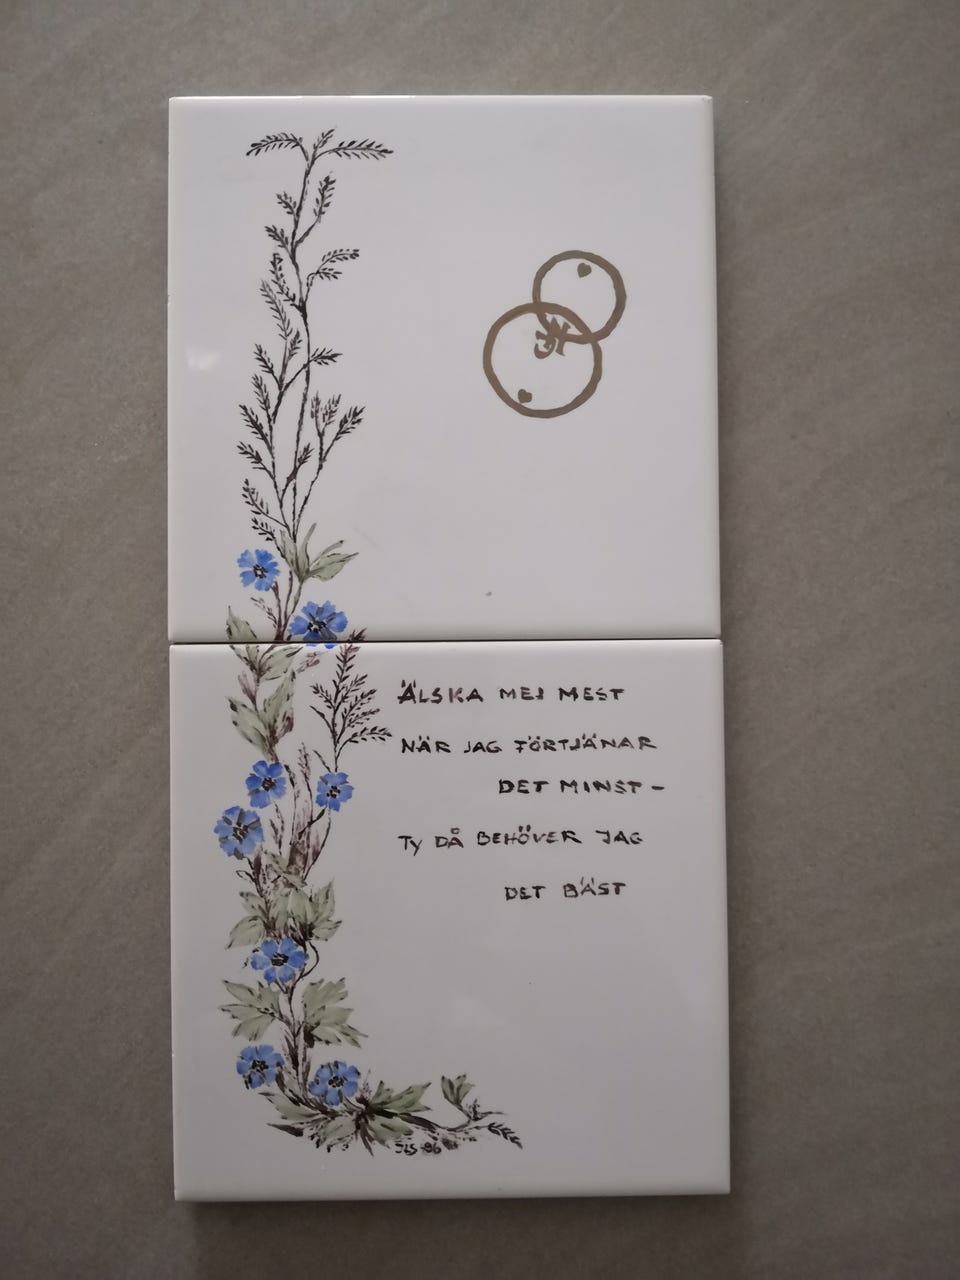 ÄLSKA MEJ MEST
NÄR JAG FÖRTJÄNAR
DET MINST –
TY DÅ BEHÖVER JAG
DET BÄST